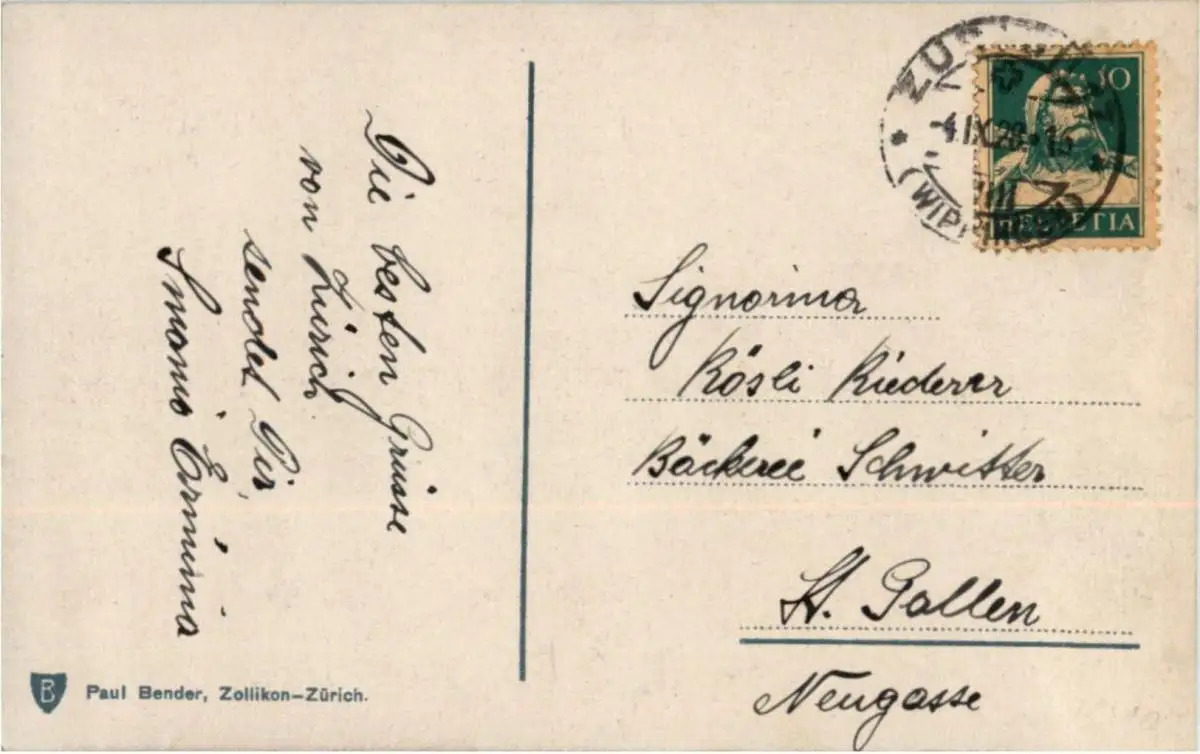 Die besten Grüsse
von Zürich
sendet Dir,
Smomo Erminia
10
4.IX.29.-15
(WIPKINGEN)
HELVETIA
Signorina
Rösli Riederer
Bäckerei Schwitter
St. Gallen
Neugasse
B Paul Bender, Zollikon–Zürich.